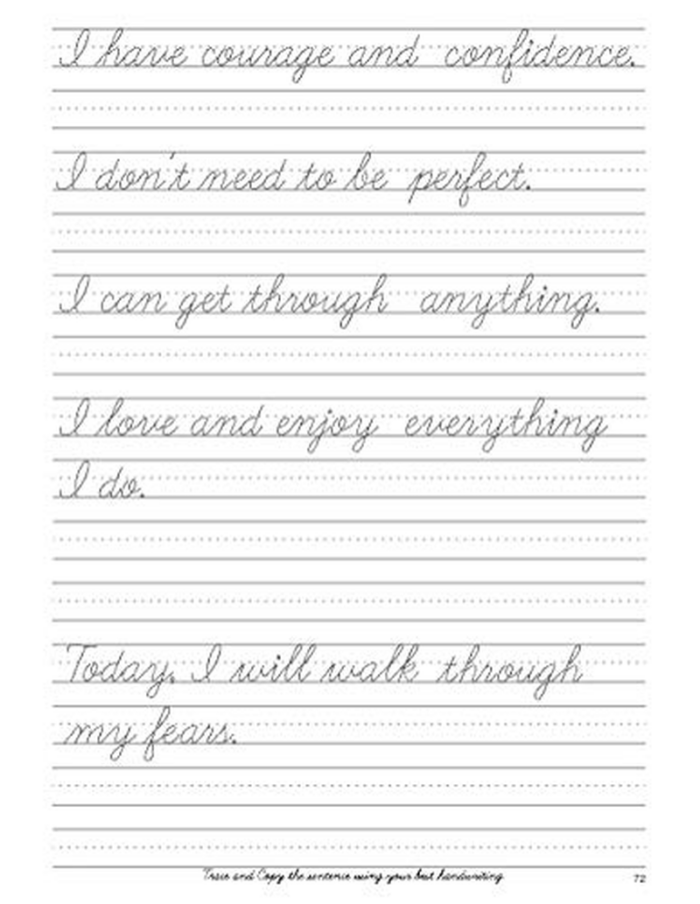 I have courage and confidence.
I don't need to be perfect.
I can get through anything.
I love and enjoy everything
I do.
Today, I will walk through
my fears.
Trace and Copy the sentence using your best handwriting
72